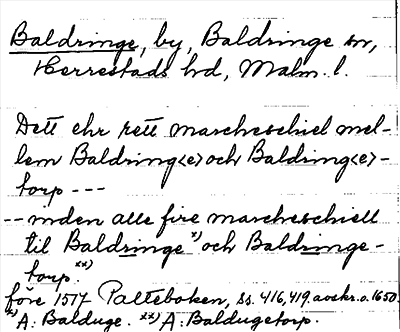 Baldringe, by, Baldringe sn,
Herrestads hd, Malm. l.
Dett ehr rett marckeschiel mel-
lem Baldring<e> och Baldring<e>-
torp ---
-- inden alle fire marckeschiell
til Baldringe *) och Baldringe-
torp. **)
före 1517 Palteboken, ss. 416, 419. avskr. o. 1650.
*) A: Balduge. **) A: Baldugetorp.